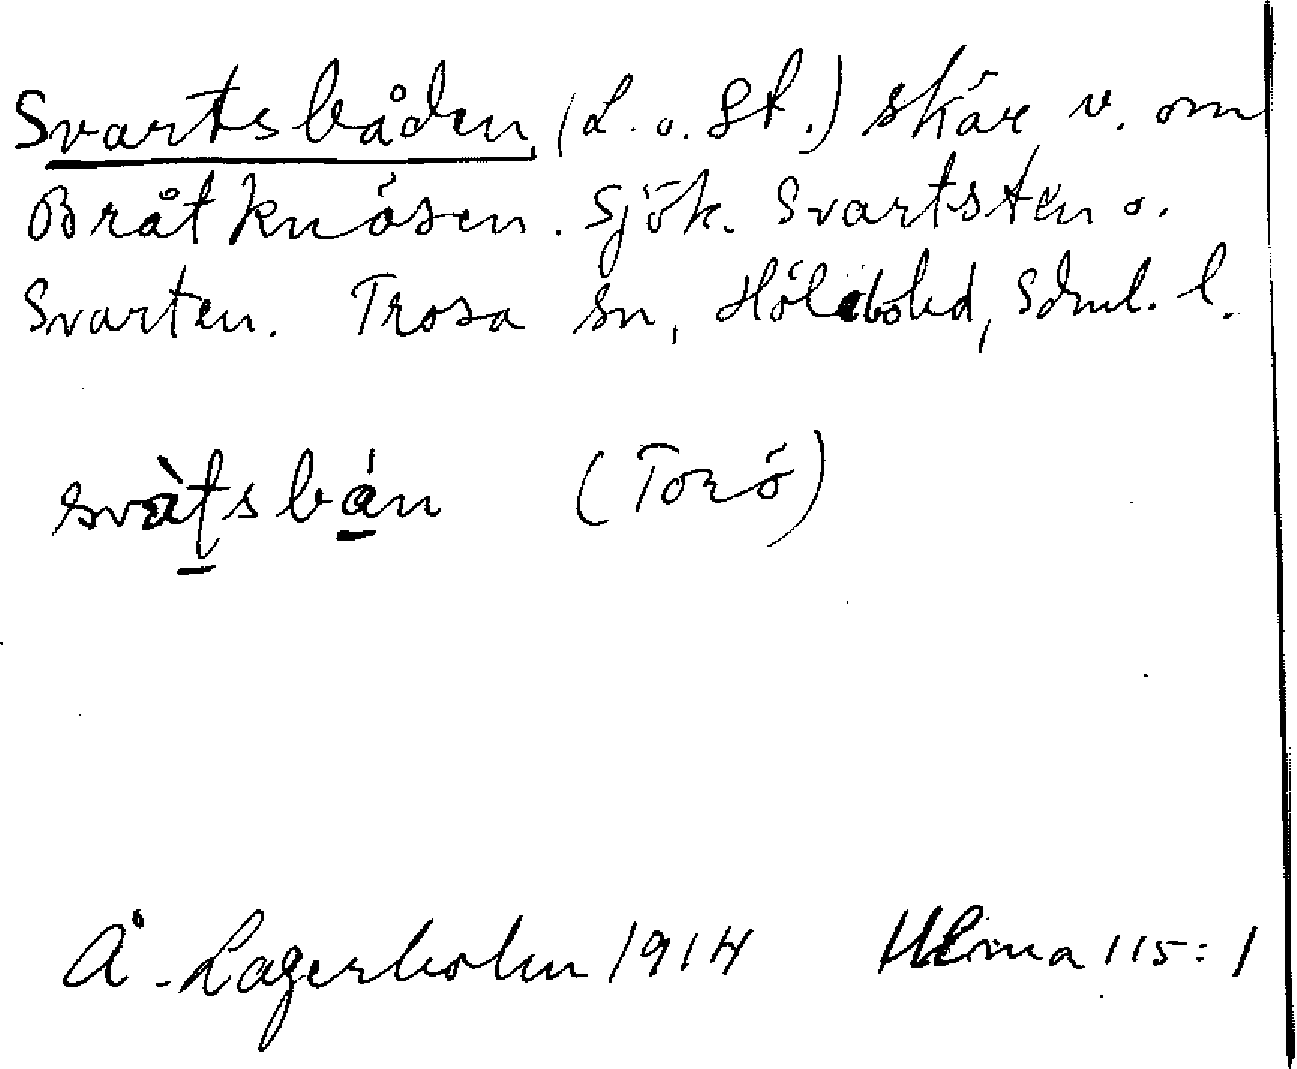 Svartsbåden, (L. o. St.) skär v. om
Bråtknösen. Sjök. Svartsten o.
Svarten. Trosa sn, Hölebohd, Sdml. l.
svàtsbán (Torö)
Å. Lagerholm 1914 Ulma 115:1